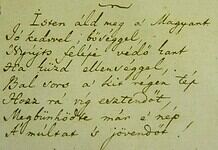 Isten áld meg a Magyart
Jó kedvvel, bőséggel,
Nyújts feléje védő kart
Ha küzd ellenséggel;
Bal sors a kit régen tép
Hozz rá víg esztendőt,
Megbűnhődte már e' nép
A' multat 's jövendőt!